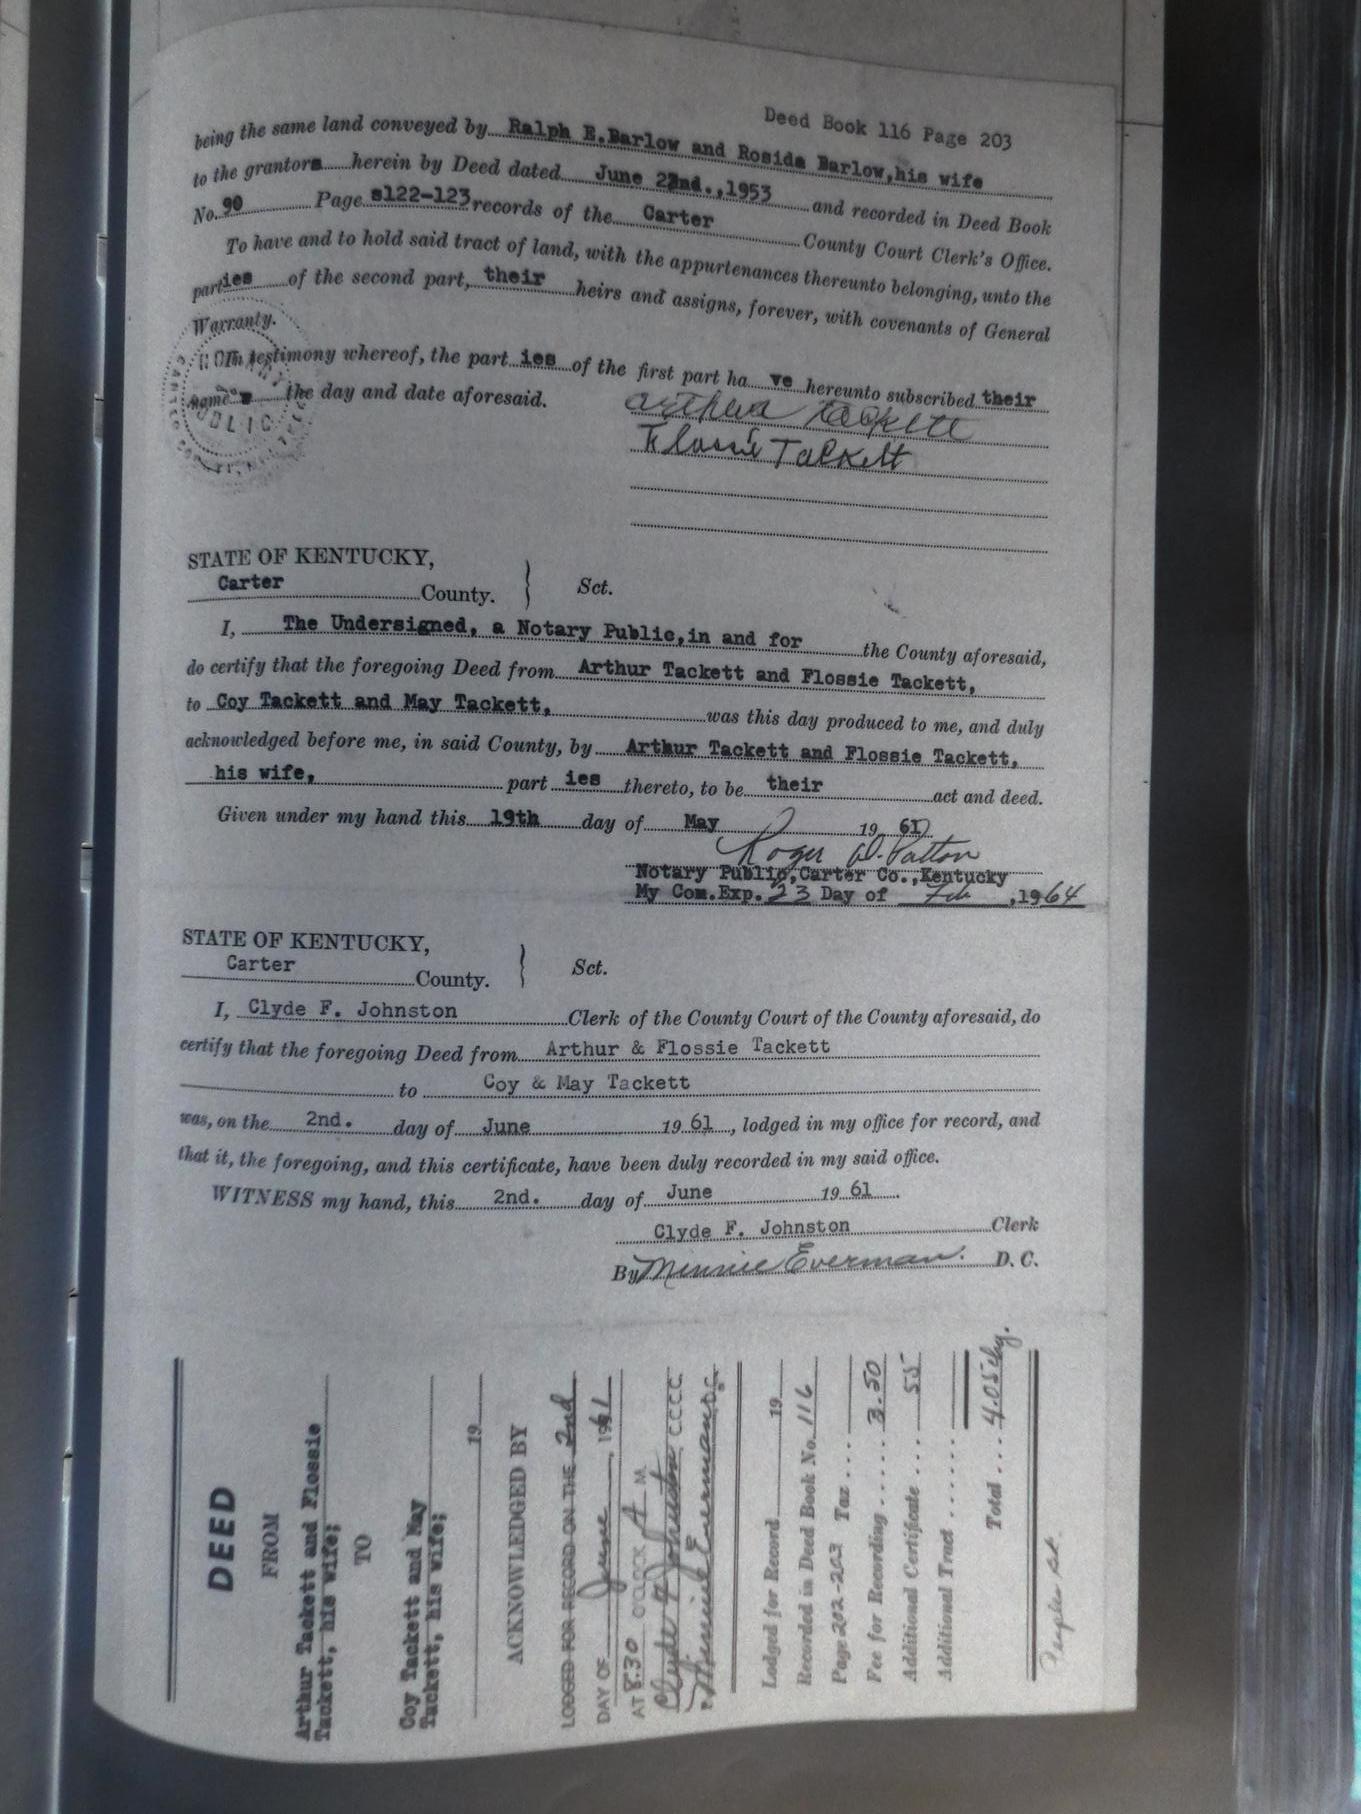 Deed Book 116 Page 203
being the same land conveyed by Ralph E.Barlow and Rosida Barlow,his wife
to the grantors herein by Deed dated June 22nd.,1953 and recorded in Deed Book
No. 90 Page s122-123 records of the Carter County Court Clerk's Office.
To have and to hold said tract of land, with the appurtenances thereunto belonging, unto the
parties of the second part, their heirs and assigns, forever, with covenants of General
Warranty.
In testimony whereof, the part ies of the first part ha ve hereunto subscribed their
name s the day and date aforesaid.
Arthur Tackett
Flossie Tackett
STATE OF KENTUCKY,
Carter County. } Sct.
I, The Undersigned, a Notary Public,in and for the County aforesaid,
do certify that the foregoing Deed from Arthur Tackett and Flossie Tackett,
to Coy Tackett and May Tackett, was this day produced to me, and duly
acknowledged before me, in said County, by Arthur Tackett and Flossie Tackett,
his wife, part ies thereto, to be their act and deed.
Given under my hand this 19th day of May 19 61
Roger D. Patton
Notary Public,Carter Co.,Kentucky
My Com.Exp. 23 Day of Feb ,1964
STATE OF KENTUCKY,
Carter County. } Sct.
I, Clyde F. Johnston Clerk of the County Court of the County aforesaid, do
certify that the foregoing Deed from Arthur & Flossie Tackett
to Coy & May Tackett
was, on the 2nd. day of June 19 61, lodged in my office for record, and
that it, the foregoing, and this certificate, have been duly recorded in my said office.
WITNESS my hand, this 2nd. day of June 19 61.
Clyde F. Johnston Clerk
By Minnie Everman. D. C.
DEED
FROM
Arthur Tackett and Flossie
Tackett, his wife;
TO
Coy Tackett and May
Tackett, his wife;
19
ACKNOWLEDGED BY
LODGED FOR RECORD ON THE 2nd
DAY OF June, 1961
AT 8:30 O'CLOCK A M.
Clyde F Johnston C.C.C.C.
Minnie Everman D.C.
Lodged for Record 19
Recorded in Deed Book No. 116
Page 202-203 Tax ....
Fee for Recording ..... 3.50
Additional Certificate ... 55
Additional Tract ......
Total .... 4.05 chg.
Peoples Bk.